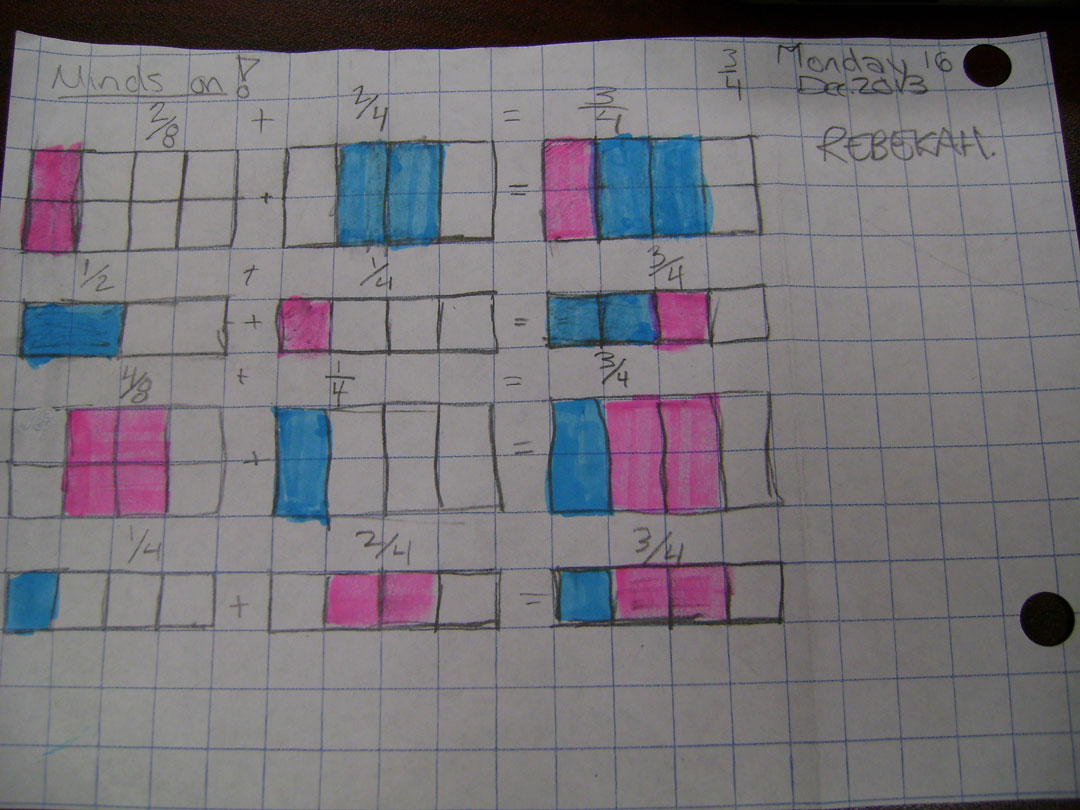 Minds on!
3/4
Monday 16
Dec. 2013
REBEKAH.
2/8 + 2/4 = 3/4
+ =
1/2 + 1/4 3/4
+ =
4/8 + 1/4 = 3/4
+ =
1/4 2/4 3/4
+ =